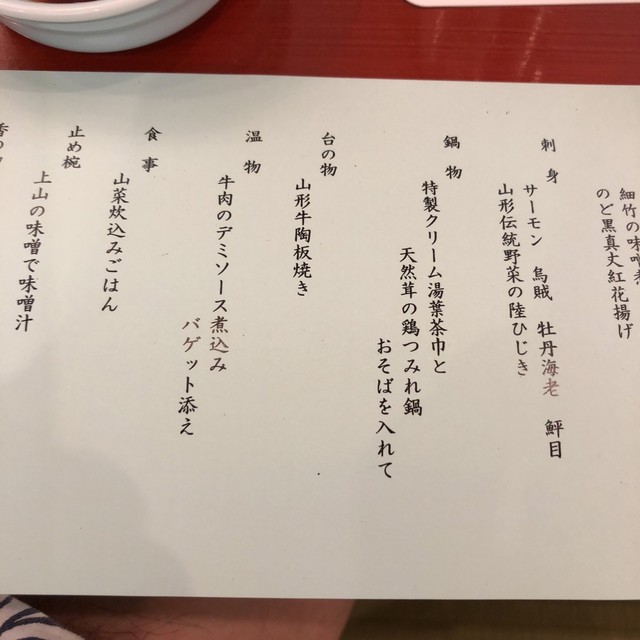 細竹の味噌煮
のど黒真丈紅花揚げ
刺身
サーモン 烏賊 牡丹海老 鮃目
山形伝統野菜の陸ひじき
鍋物
特製クリーム湯葉茶巾と
天然茸の鶏つみれ鍋
おそばを入れて
台の物
山形牛陶板焼き
温物
牛肉のデミソース煮込み
バゲット添え
食事
山菜炊込みごはん
止め椀
上山の味噌で味噌汁